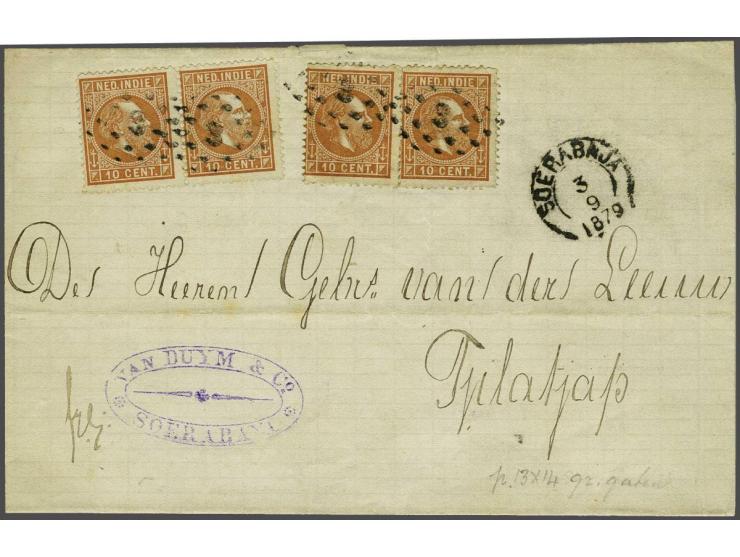 NED. INDIE NED. INDIE NED. INDIE NED. INDIE
10 CENT. 10 CENT. 10 CENT. 10 CENT.
SOERABAJA
3
9
1879
Des Heeren Gebrs van der Leeuw
Tjilatjap
VAN DUYM & Co
SOERABAYA
p. 13x14 gr.